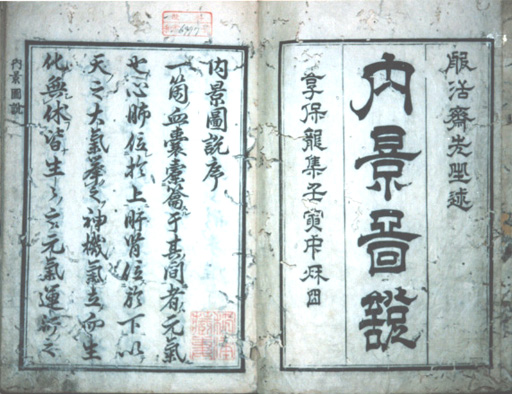 服活齋先生述
内景啚說
享保龍集壬寅中秌
内景圖說序
一箇血囊橐籥于其間者元氣
也心肺位於上肝腎位於下以
天之大氣養之神機氣立而生
化無休皆生々之元氣運行之
内景圖說